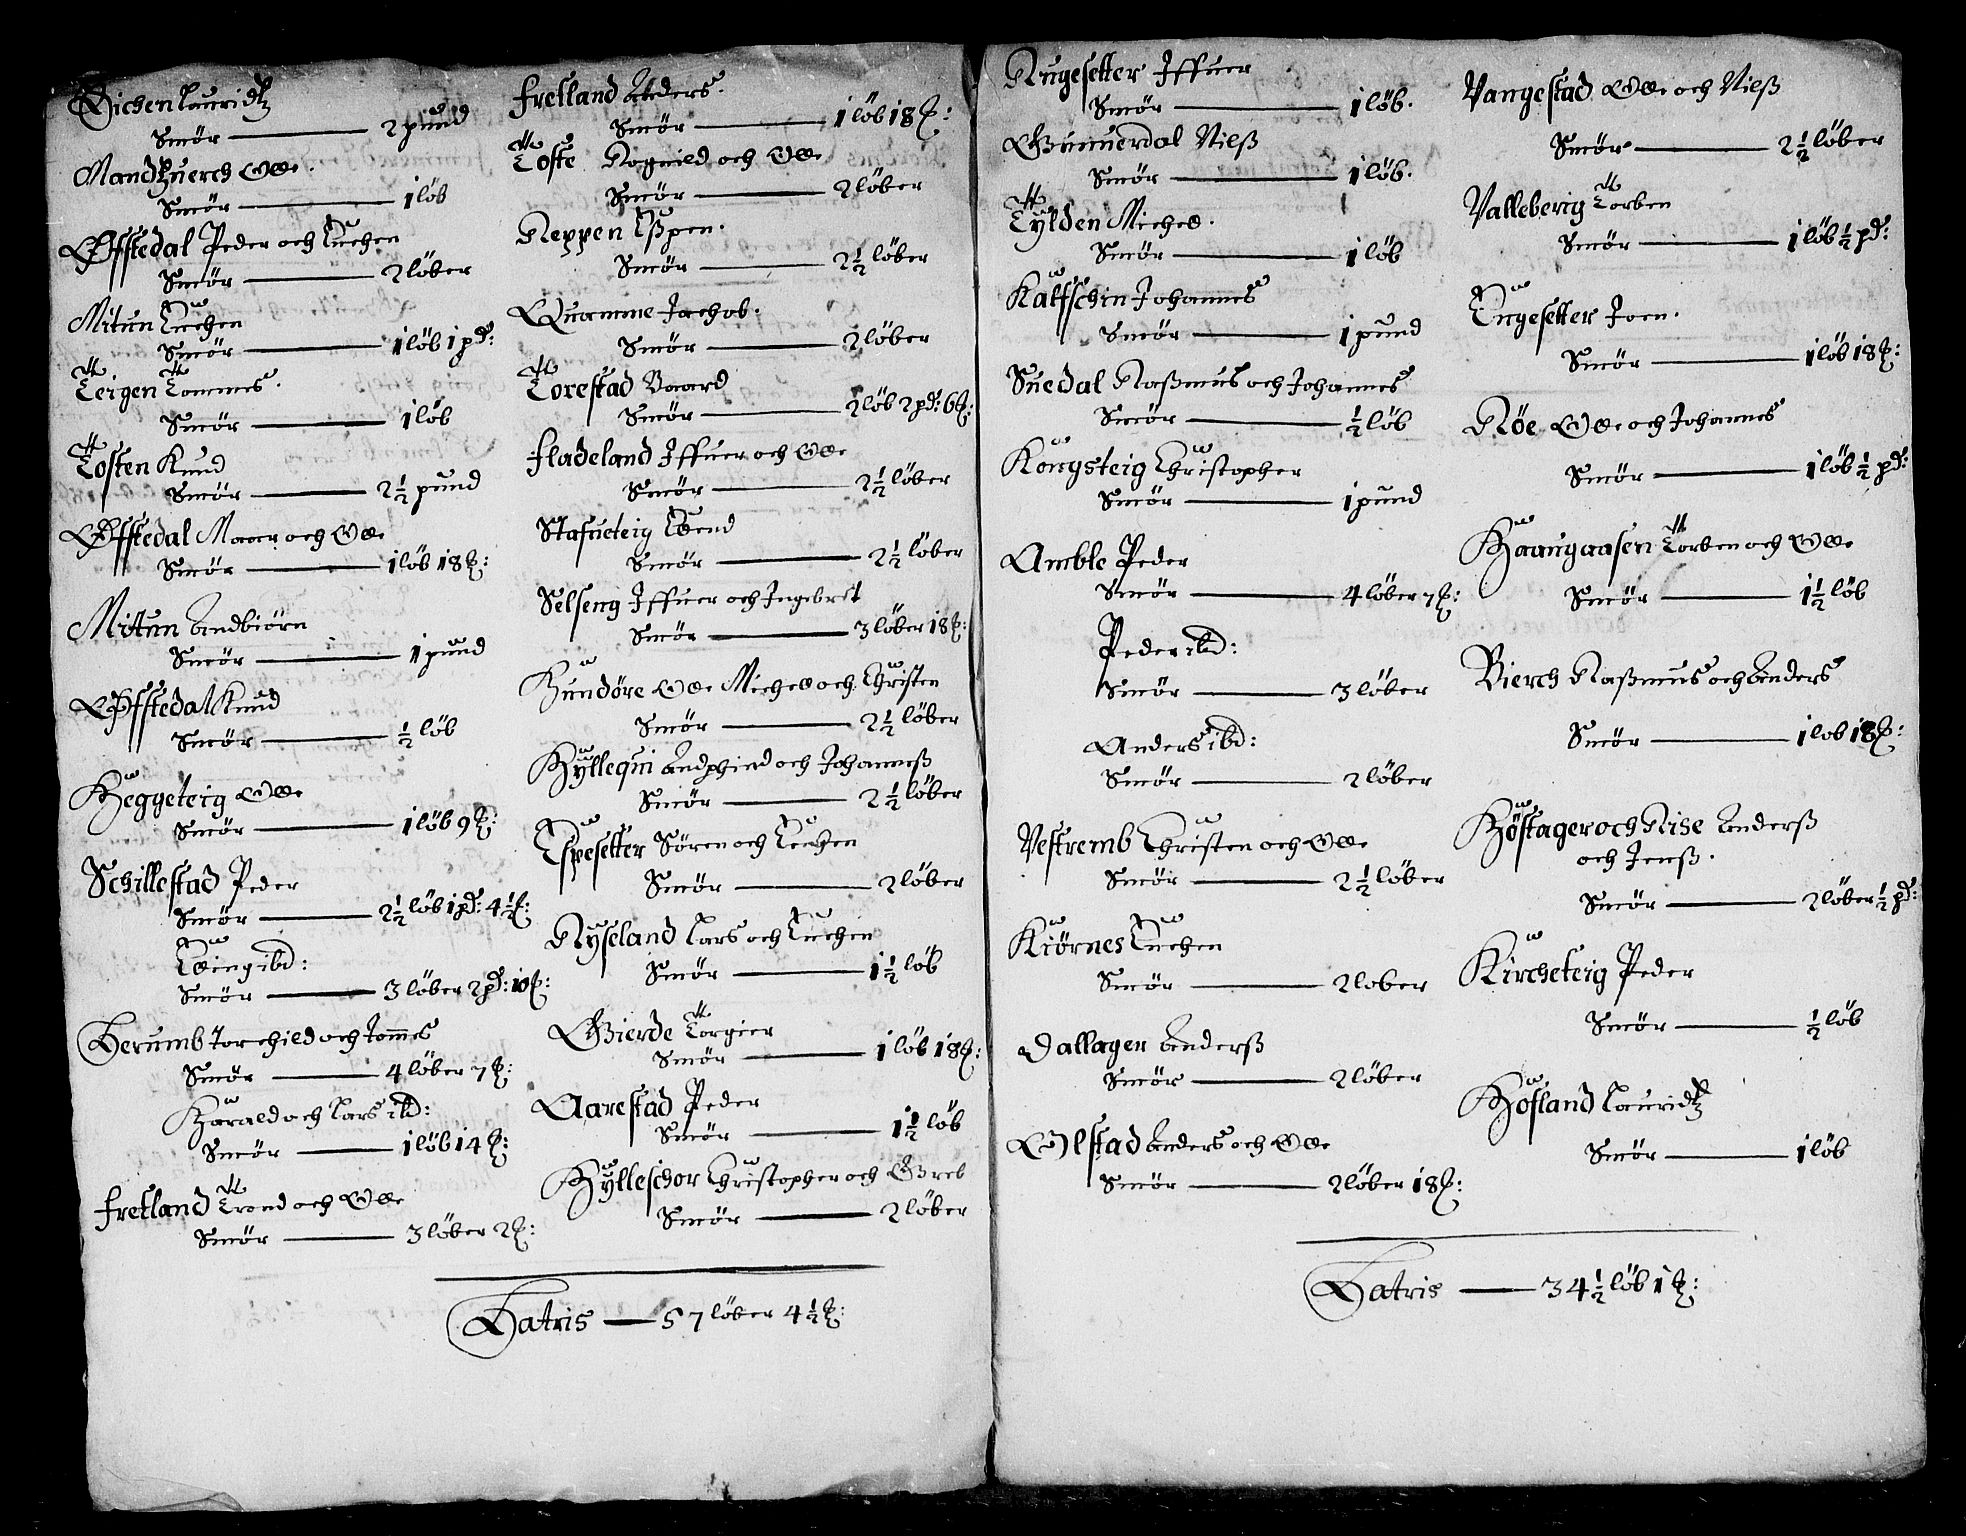 Eichen Lauridtz
Smör — 2 pund
Mandzuerch Olle.
Smör — 1 löb
Offstedal Peder och Luchen
Smör — 2 löber
Mitun Luchen
Smör — 1 löb 1 pd:
Teigen Tommes.
Smör — 1 löb
Tosten Knud
Smör — 2½ pund
Offstedal Mons och Olle
Smör — 1 löb 18 ℔:
Mitun Andbiörn
Smör — 1 pund
Offstedal Knud
Smör — ½ löb
Heggeteig Olle
Smör — 1 löb 9 ℔:
Schillestad Peder
Smör — 2½ löb 1 pd: 4½ ℔:
Elling ibd:
Smör — 3 löber 2 pd: 10 ℔:
Herumb Torchild och Tommes
Smör — 4 löber 7 ℔:
Harald och Lars ibd:
Smör — 1 löb 14 ℔:
Fretland Trond och Olle
Smör — 3 löber 2 ℔:
Fretland Anders.
Smör — 1 löb 18 ℔:
Tofte Rognild och Olle
Smör — 2 löber
Reppen Espen.
Smör — 2½ löber
Quamme Jachob.
Smör — 2 löber
Torestad Baard
Smör — 2 löb 2 pd: 6 ℔:
Fladeland Iffuer och Olle
Smör — 2½ löber
Stafueteig Ellend
Smör — 2½ löber
Selseng Iffuer och Ingebret
Smör — 3 löber 18 ℔:
Hundöre Olle Michell och Christen
Smör — 2½ löber
Hyllequi Andphind och Johannesß
Smör — 2½ löber
Espesetter Sören och Luchen
Smör — 2 löber
Nyseland Lars och Luchen
Smör — 1½ löb
Gierde Torgier
Smör — 1 löb 18 ℔:
Aarestad Peder
Smör — 1½ löb
Hylleschor Christopher och Greb
Smör — 2 löber
Latris — 57 löber 4½ ℔:
Rugesetter Iffuer
Smör — 1 löb.
Gunuerdal Nilß
Smör — 1 löb.
Tylden Michell.
Smör — 1 löb
Kalfschin Johannes
Smör — 1 pund
Suedal Raßmus och Johannes
Smör — ½ löb
Kongsteig Christopher
Smör — 1 pund
Amble Peder
Smör — 4 löber 7 ℔:
Peder ibd:
Smör — 3 löber
Anders ibd:
Smör — 2 löber
Vestremb Christen och Olle
Smör — 2½ löber
Kiörnes Luchen
Smör — 2 lober
Dallagen Anderß
Smör — 2 löber
Olstad Anders och Olle
Smör — 2 löber 18 ℔:
Vangestad Olle och Nilß
Smör — 2½ löber
Valleberig Torben
Smör — 1 löb ½ pd:
Engesetter Joen.
Smör — 1 löb 18 ℔:
Röe Olle och Johannes
Smör — 1 löb ½ pd:
Haaugaasen Torben och Olle
Smör — 1½ löb
Bierch Raßmus och Anders
Smör — 1 lob 18 ℔:
Höstager och Rise Anderß
och Jenß.
Smör — 2 löber ½ pd:
Kircheteig Peder
Smör — ½ löb
Höfland Lauridtz
Smör — 1 löb
Latris — 34½ löb 1 ℔: